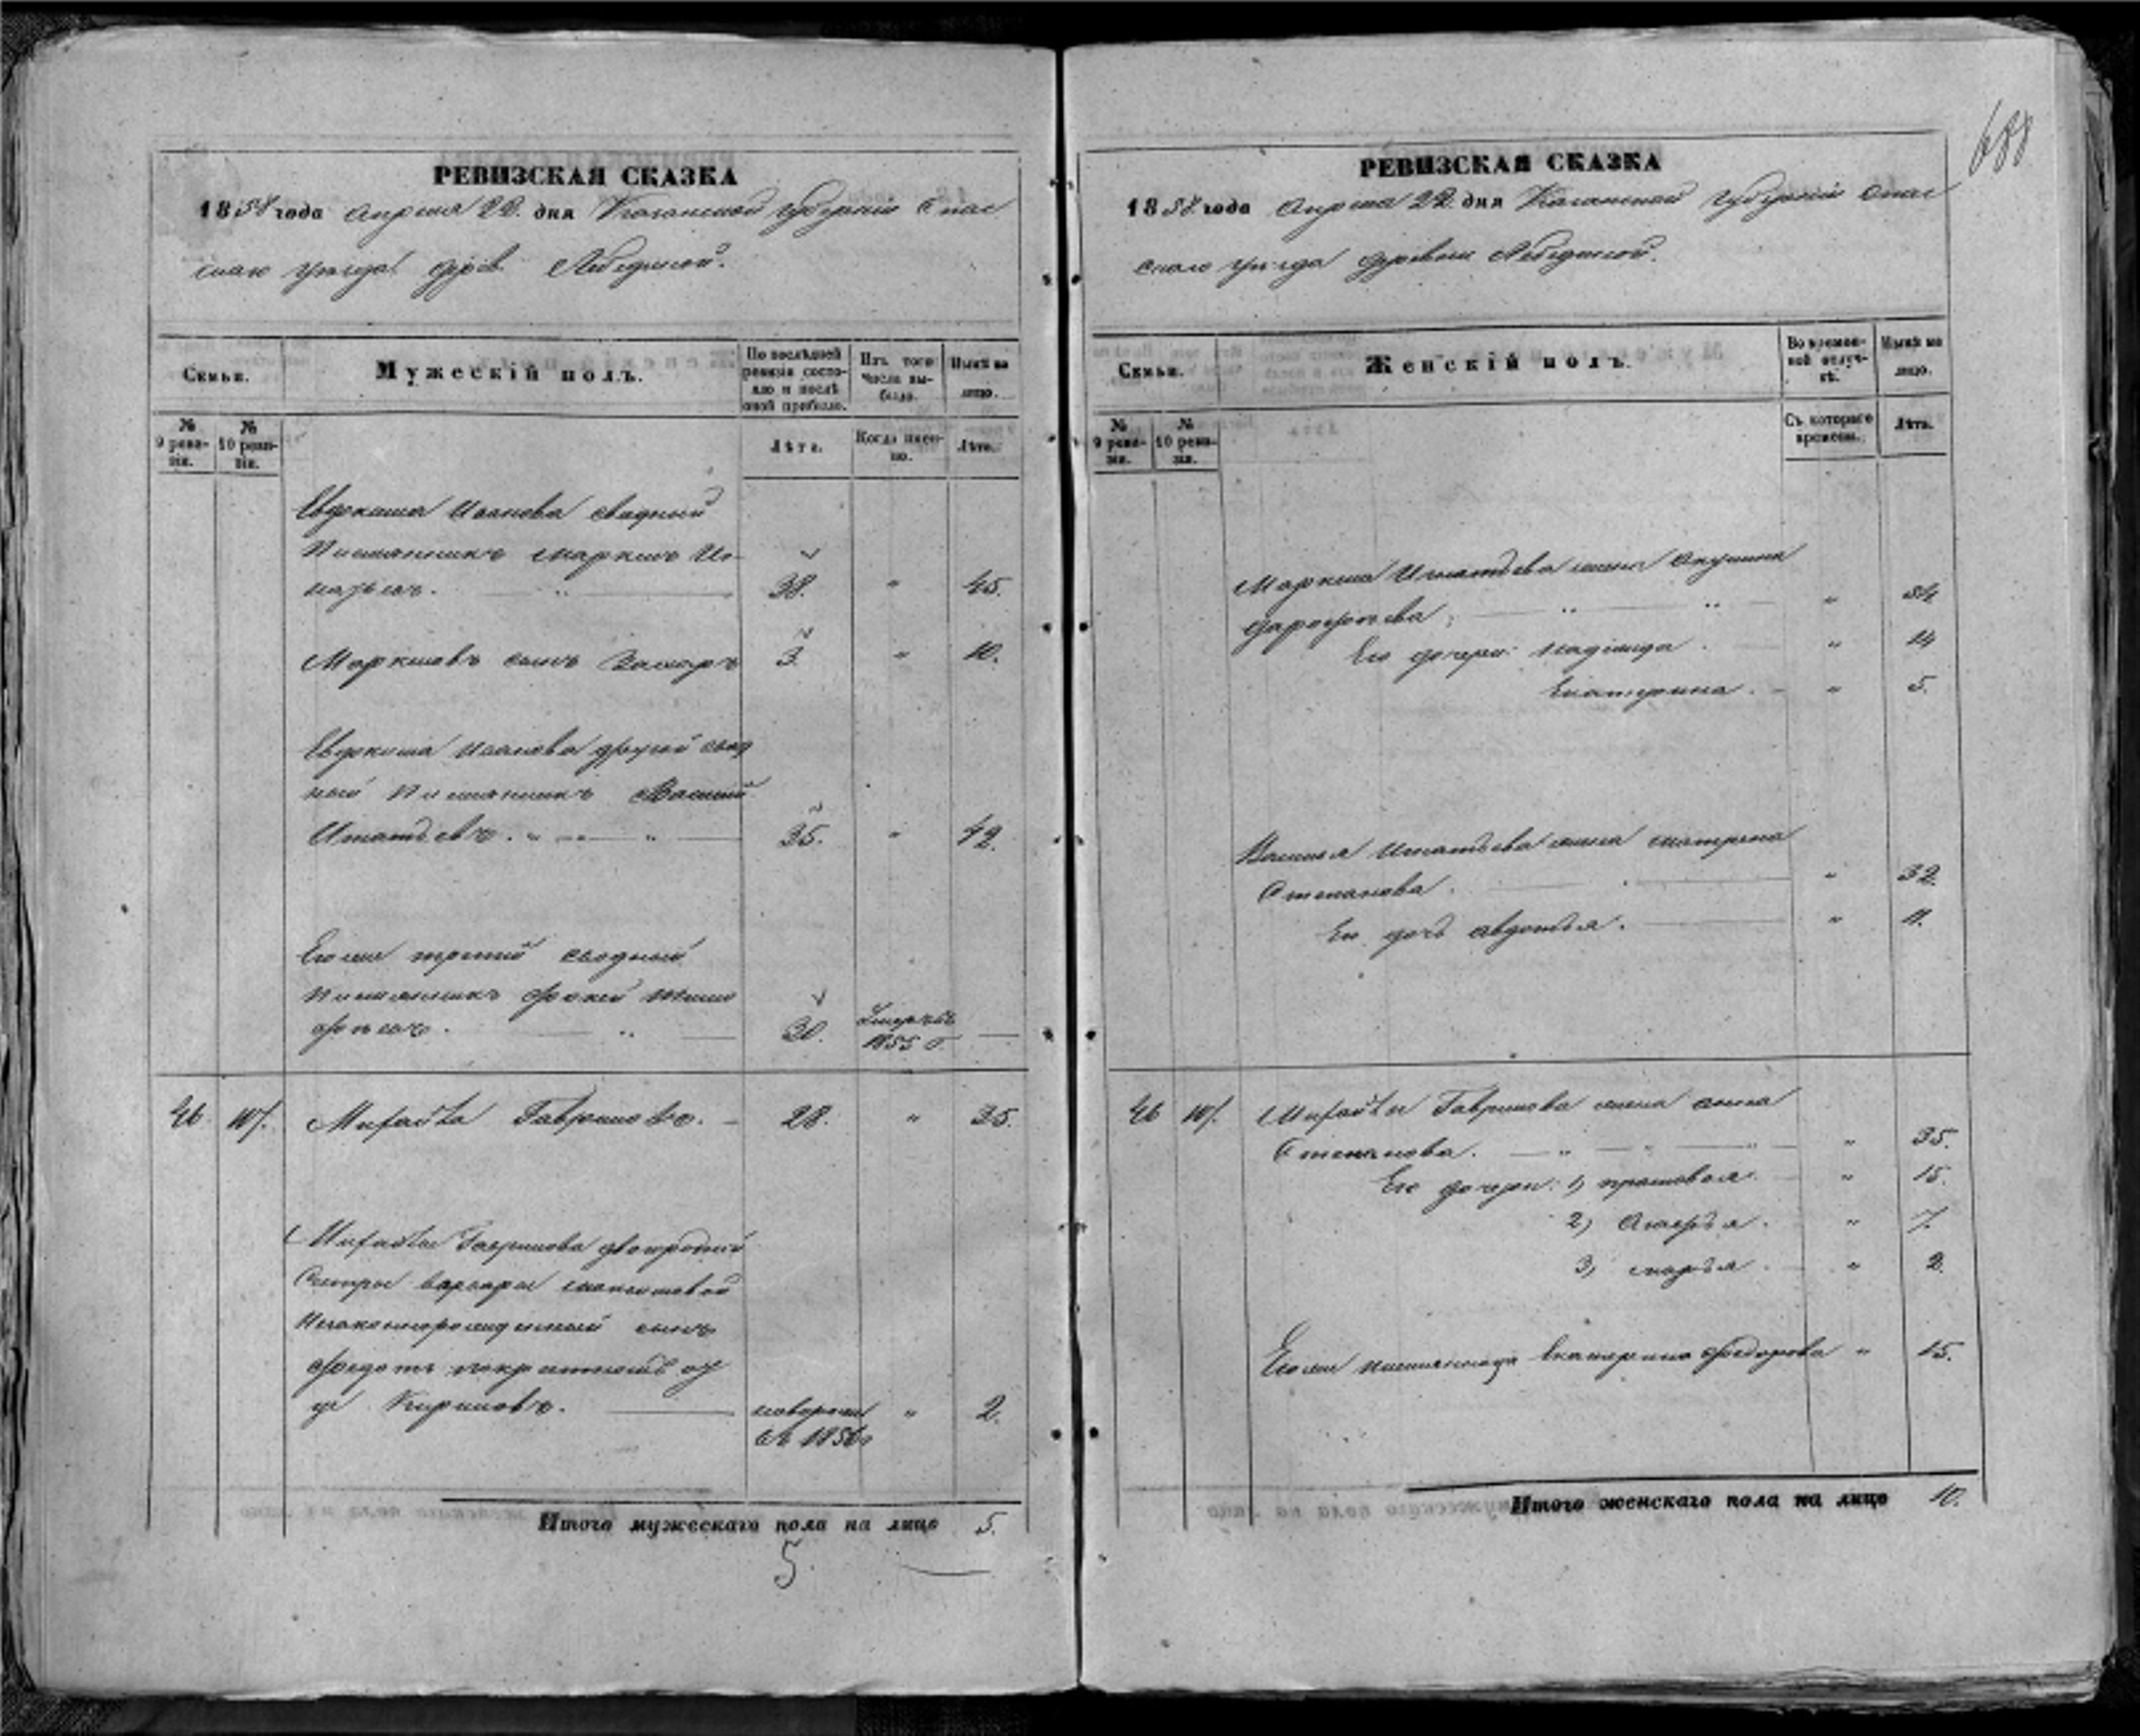 688
РЕВИЗСКАЯ СКАЗКА
1858 года Апреля 22 дня Казанской губернiи Спас
скаго уѣзда дерев. Лебедяжей.
Семьи.
Мужескiй полъ.
По послѣдней ревизiи состояло и послѣ оной прибыло.
Изъ того числа выбыло.
Нынѣ на лицо.
№ 9 ревизiи.
№ 10 ревизiи.
Лѣта.
Когда именно.
Лѣта.
Евдокима Иванова сводный
Племянникъ Маркелъ Иг
натьевъ. 38. " 45.
Маркеловъ сынъ Захаръ 3. " 10.
Евдокима Иванова другой свод
ный Племянникъ Василiй
Игнатьевъ. " " 35. " 42.
Его же третiй сводный
Племянникъ Фокей
30. Умеръ въ 1855 г.
46 107. Михайла Гавриловъ. 28. " 35.
Михайлы Гаврилова двоюродной
Сестры Варвары
Незаконнорожденный сынъ
Федотъ
Кириловъ. новорожд съ 1856 г " 2.
Итого мужескаго пола на лицо 5.
5.
РЕВИЗСКАЯ СКАЗКА
1858 года Апреля 22 дня Казанской Губернiи Спас
скаго уѣзда деревни Лебедяжей.
Семьи.
Женскiй полъ.
Во временной отлучкѣ.
Нынѣ на лицо.
№ 9 ревизiи.
№ 10 ревизiи.
Съ котораго времени.
Лѣта.
Маркела Игнатьева жена Акулина
Дорофѣева "
Его дочери: Надежда. " 14
Екатерина. " 5.
Василья Игнатьева жена Матрена
Степанова. " 32.
Ея дочь Авдотья. " 11.
46 107. Михайлы Гаврилова жена Анна
Степанова. " 35.
Его дочери: 1, Прасковья. " 15.
2, " 7.
3, Марья. " 2.
Его же племянница Екатерина Федорова " 15.
Итого женскаго пола на лицо 10.